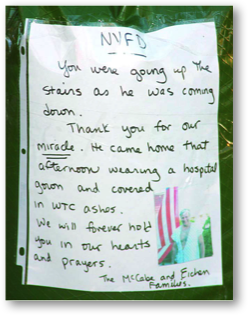 NVFD
You were going up the
stairs as he was coming
down.
Thank you for our
miracle. He came home that
afternoon wearing a hospital
gown and covered
in WTC ashes.
We will forever hold
you in our hearts
and prayers.
The McCabe and Eichen
Families.